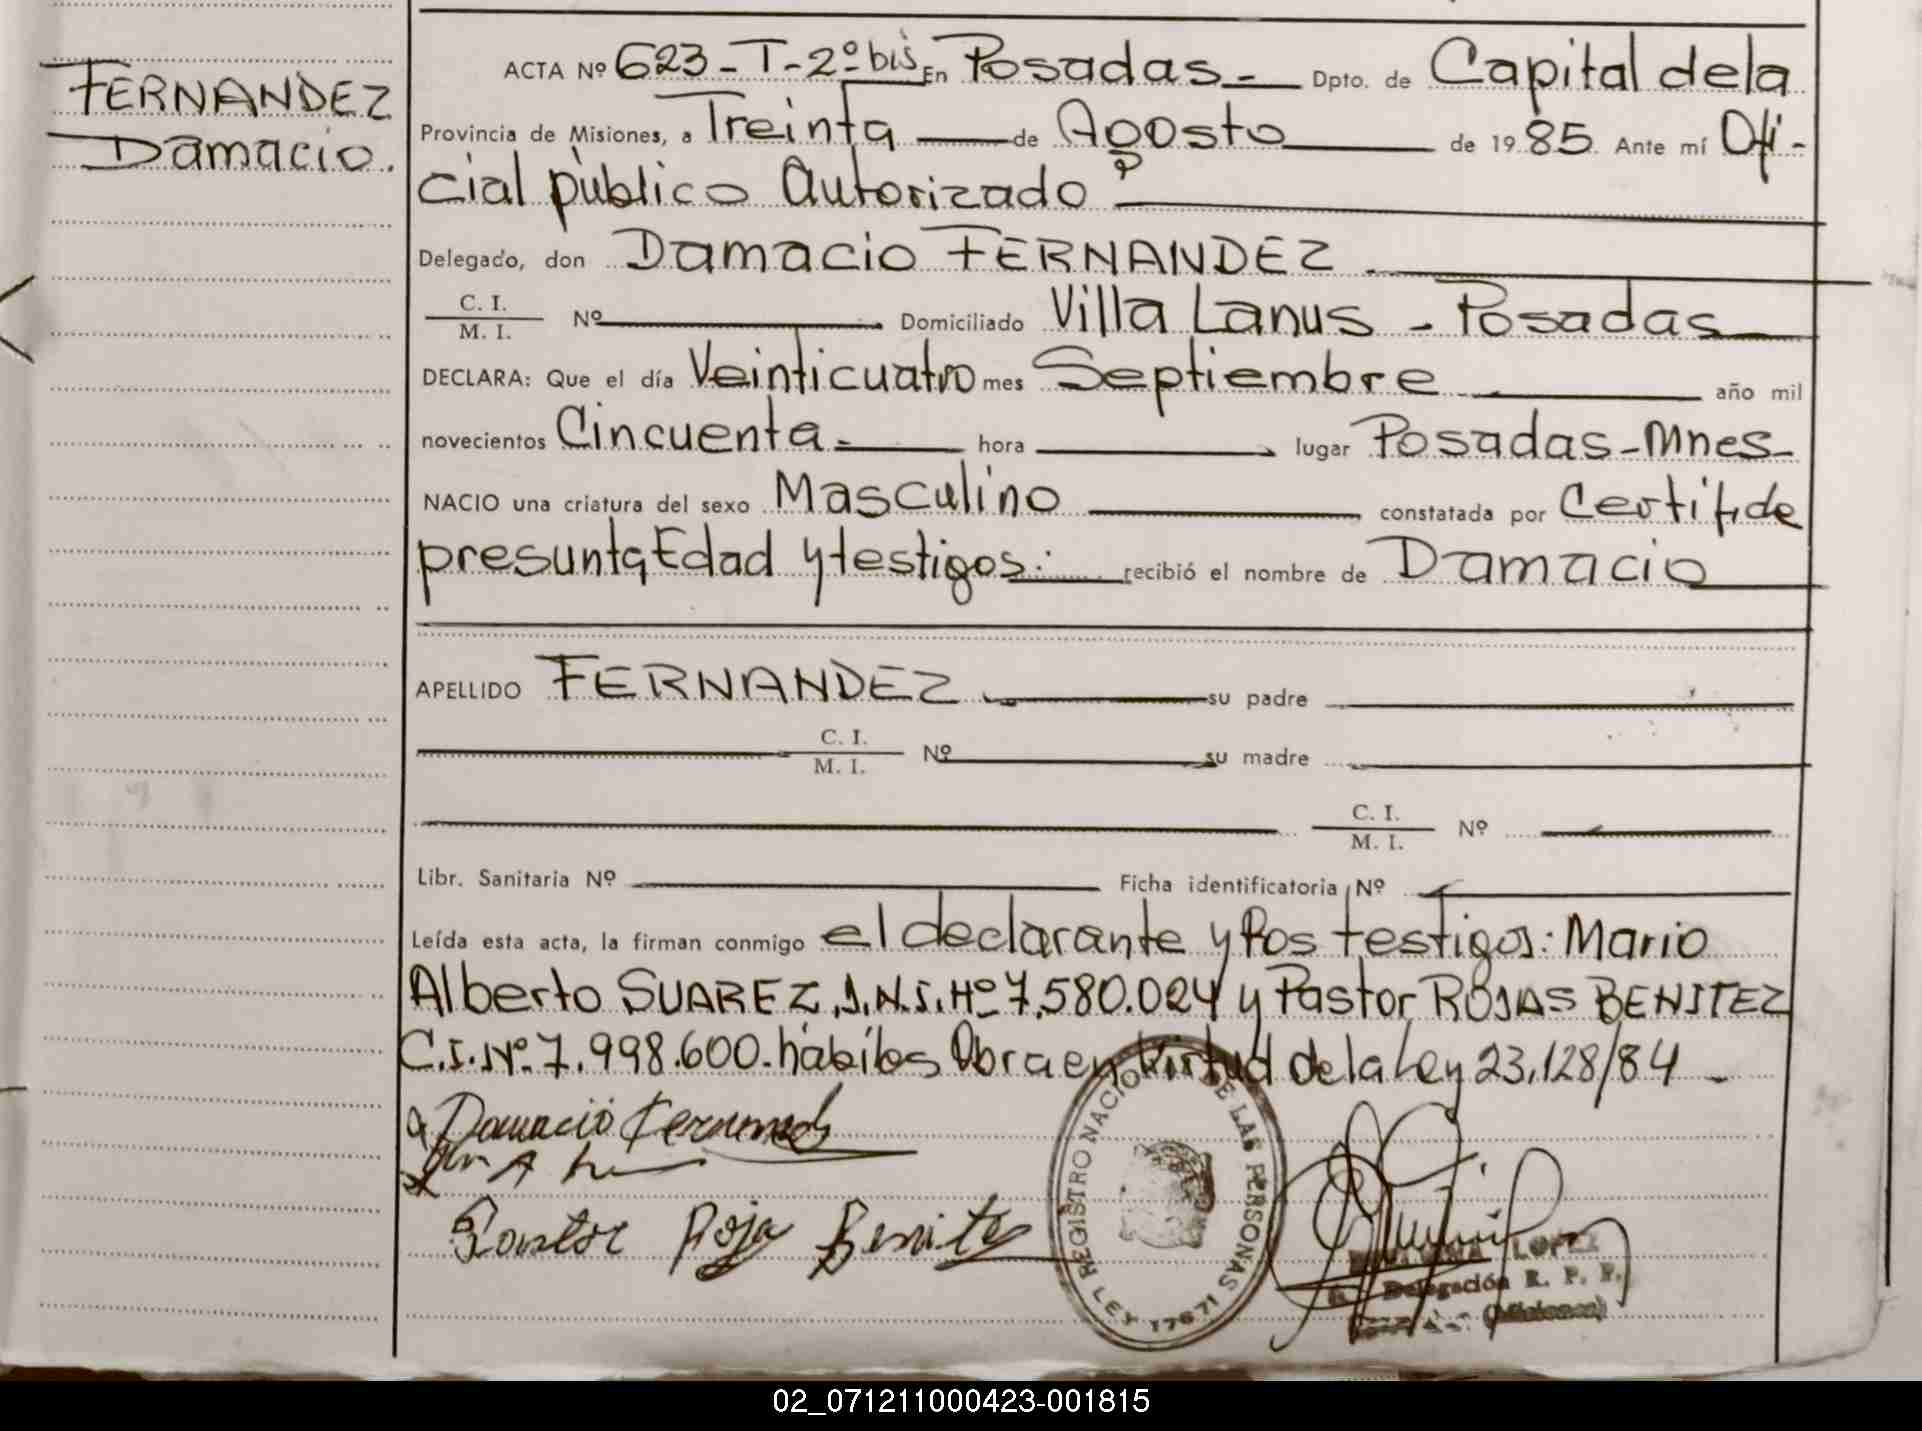 FERNANDEZ
Damacio.
ACTA Nº 623-T-2º bis En Posadas - Dpto. de Capital de la
Provincia de Misiones, a Treinta de Agosto de 1985. Ante mí Ofi-
cial pùblico Autorizado
Delegado, don Damacio FERNANDEZ.
C. I.
M. I. Nº Domiciliado Villa Lanus - Posadas
DECLARA: Que el día Veinticuatro mes Septiembre año mil
novecientos Cincuenta. hora lugar Posadas-Mnes-
NACIO una criatura del sexo Masculino constatada por Certif. de
presunta Edad y testigos: recibió el nombre de Damacio
APELLIDO FERNANDEZ su padre
C. I.
M. I. Nº su madre
C. I.
M. I. Nº
Libr. Sanitaria Nº Ficha identificatoria Nº
Leída esta acta, la firman conmigo el declarante y los testigos: Mario
Alberto SUAREZ, Nº 7.580.024 y Pastor ROJAS BENITEZ
C.I. Nº 7.998.600. hábiles Obra en Virtud de la Ley 23.128/84 -
Damacio Fernandez
Pastor Roja Benitez
REGISTRO NACIONAL DE LAS PERSONAS
LEY 17671
LOPEZ
Delegación R. P. P.
(Misiones)
02_071211000423-001815